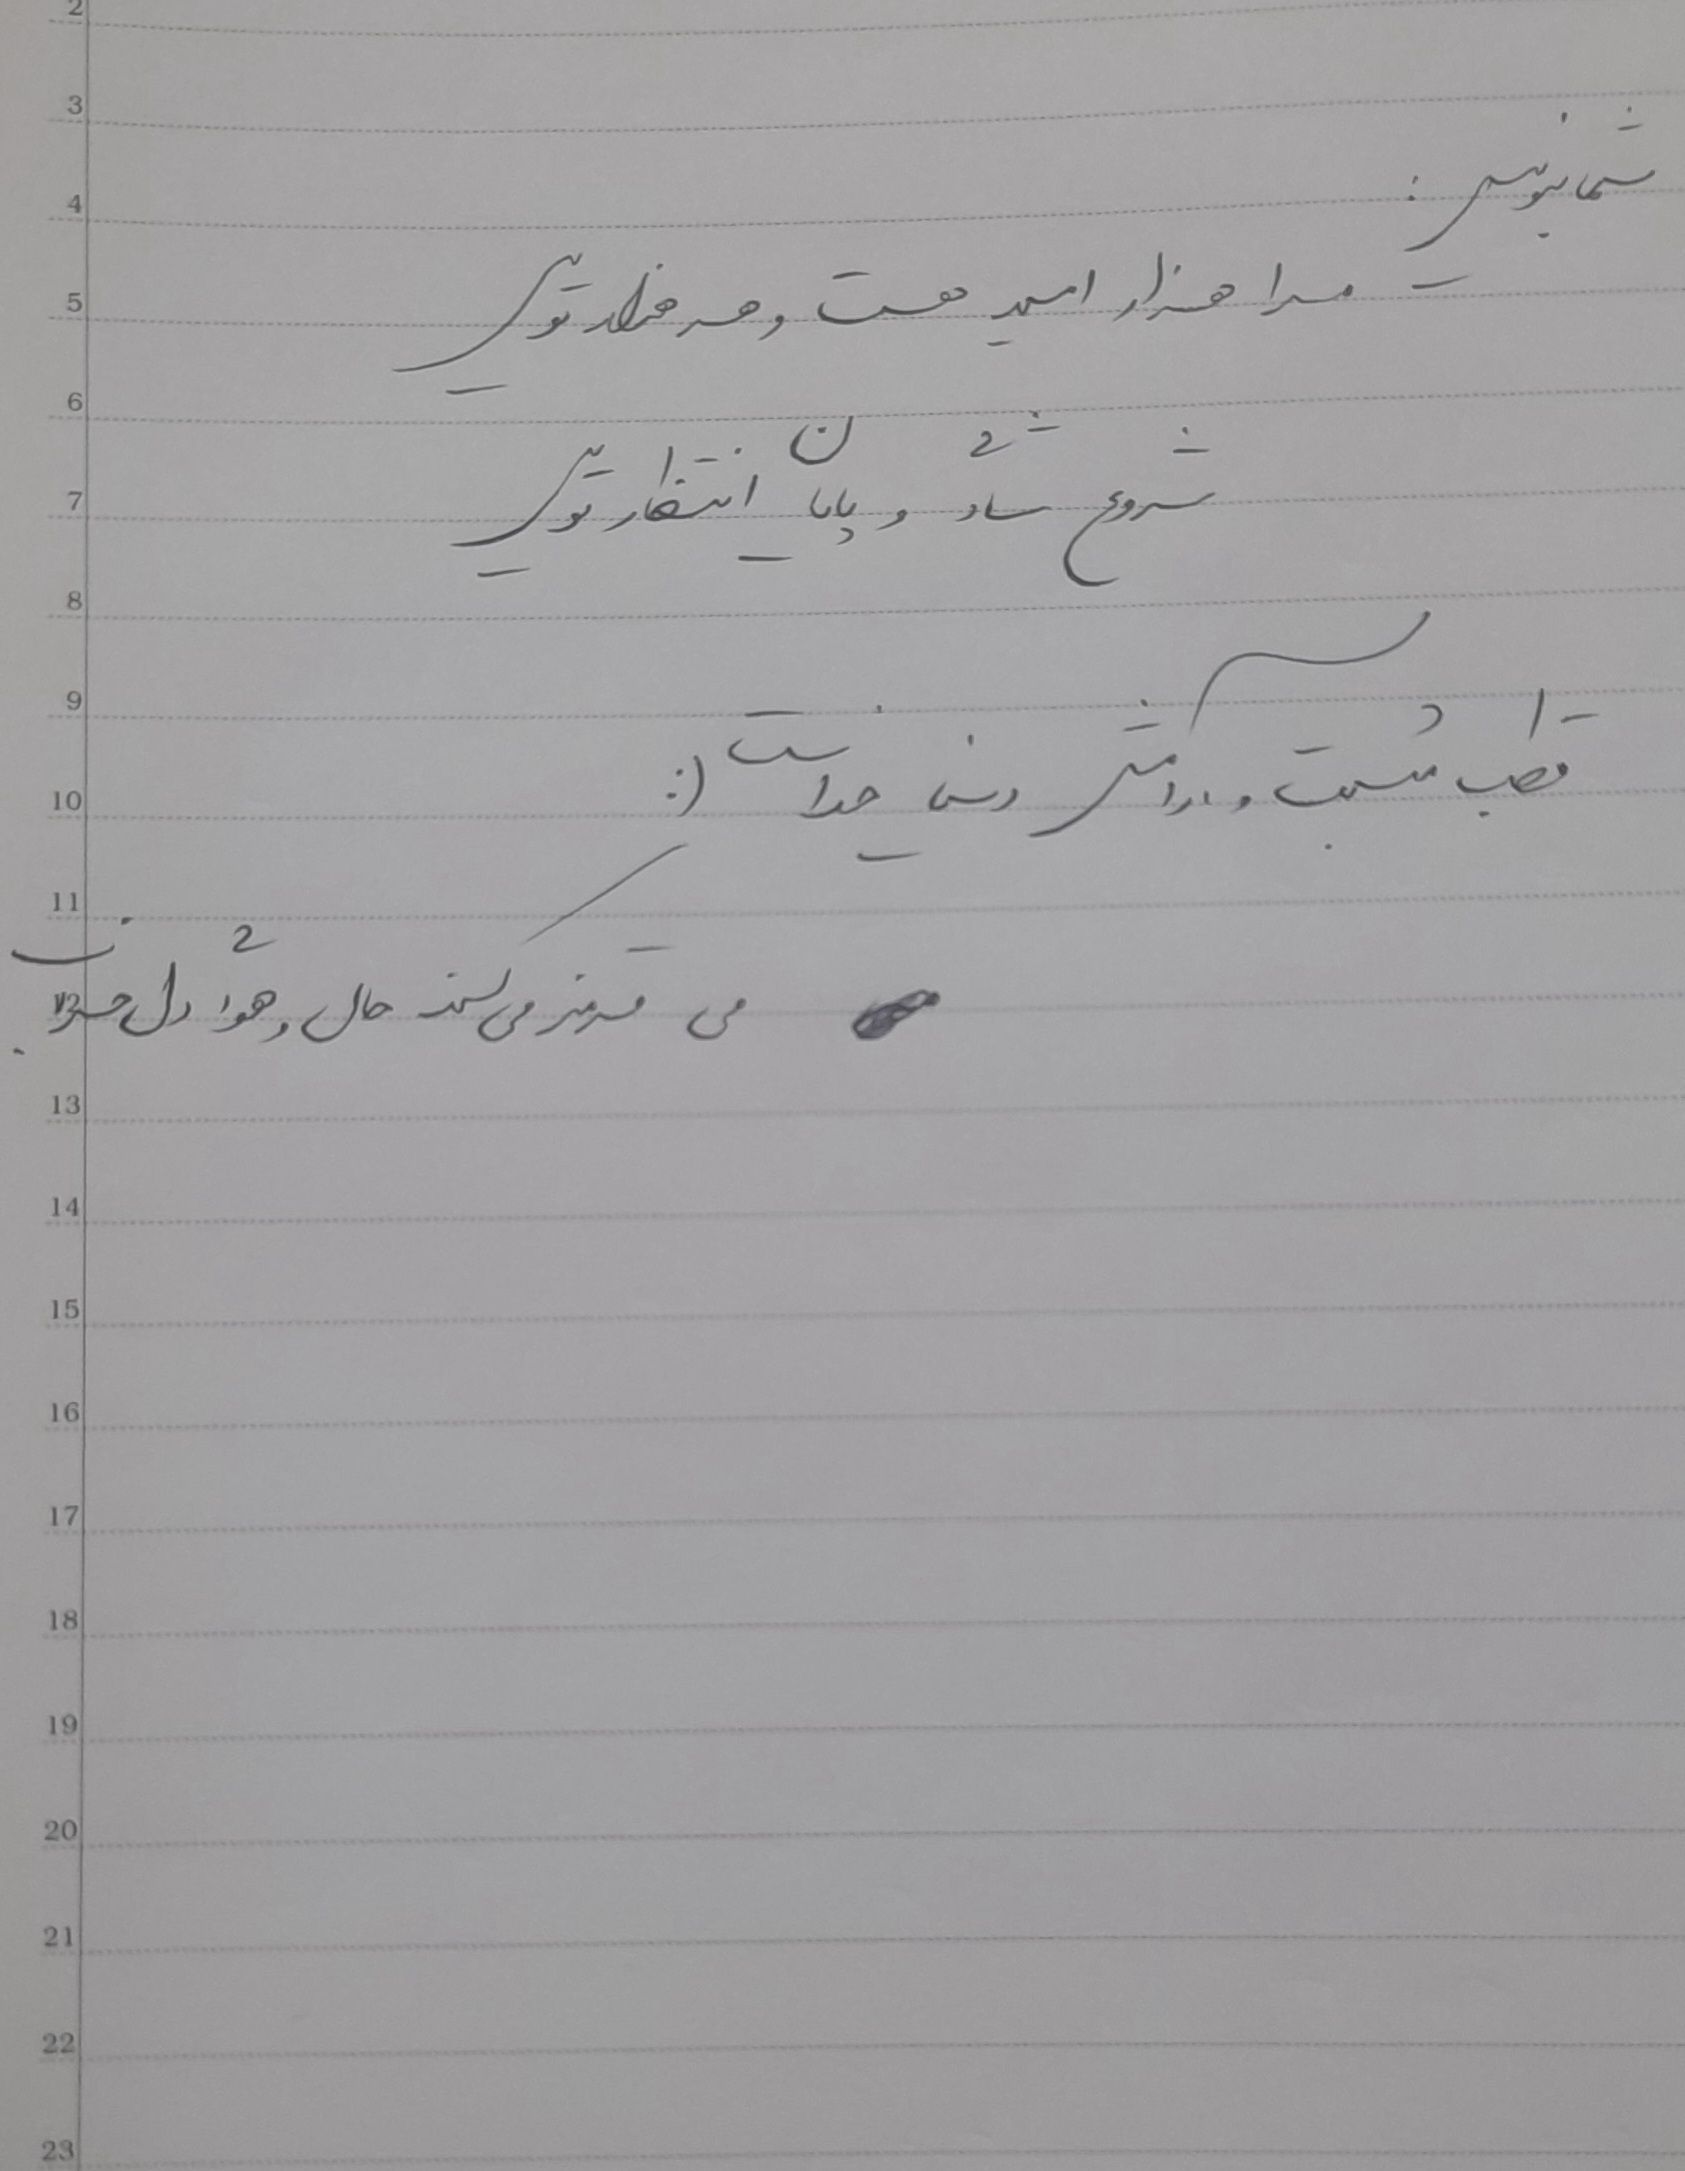 2
3
شما بنویس :
4
- مرا هزار امید هست و هر هزار تویی
5
6
شروع شادی و پایان انتظار تویی
7
8
9
و آرامش خداست :)
10
11
می قرمز می کند حال و هوای دل خراب
12
13
14
15
16
17
18
19
20
21
22
23